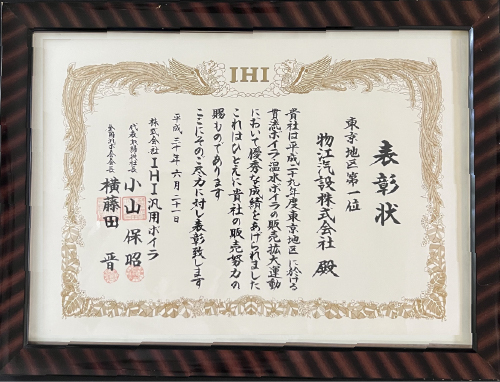 IHI
表彰状
東京地区第一位
物江汽設株式会社 殿
貴社は平成二十九年度東京地区に於ける
貫流ボイラ・温水ボイラの販売拡大運動
において優秀な成績をあげられました
これはひとえに貴社の販売努力の
賜ものであります
ここにそのご尽力に対し表彰致します
平成三十年六月二十一日
株式会社IHI汎用ボイラ
代表取締役社長 小山保昭
会長 横藤田晋